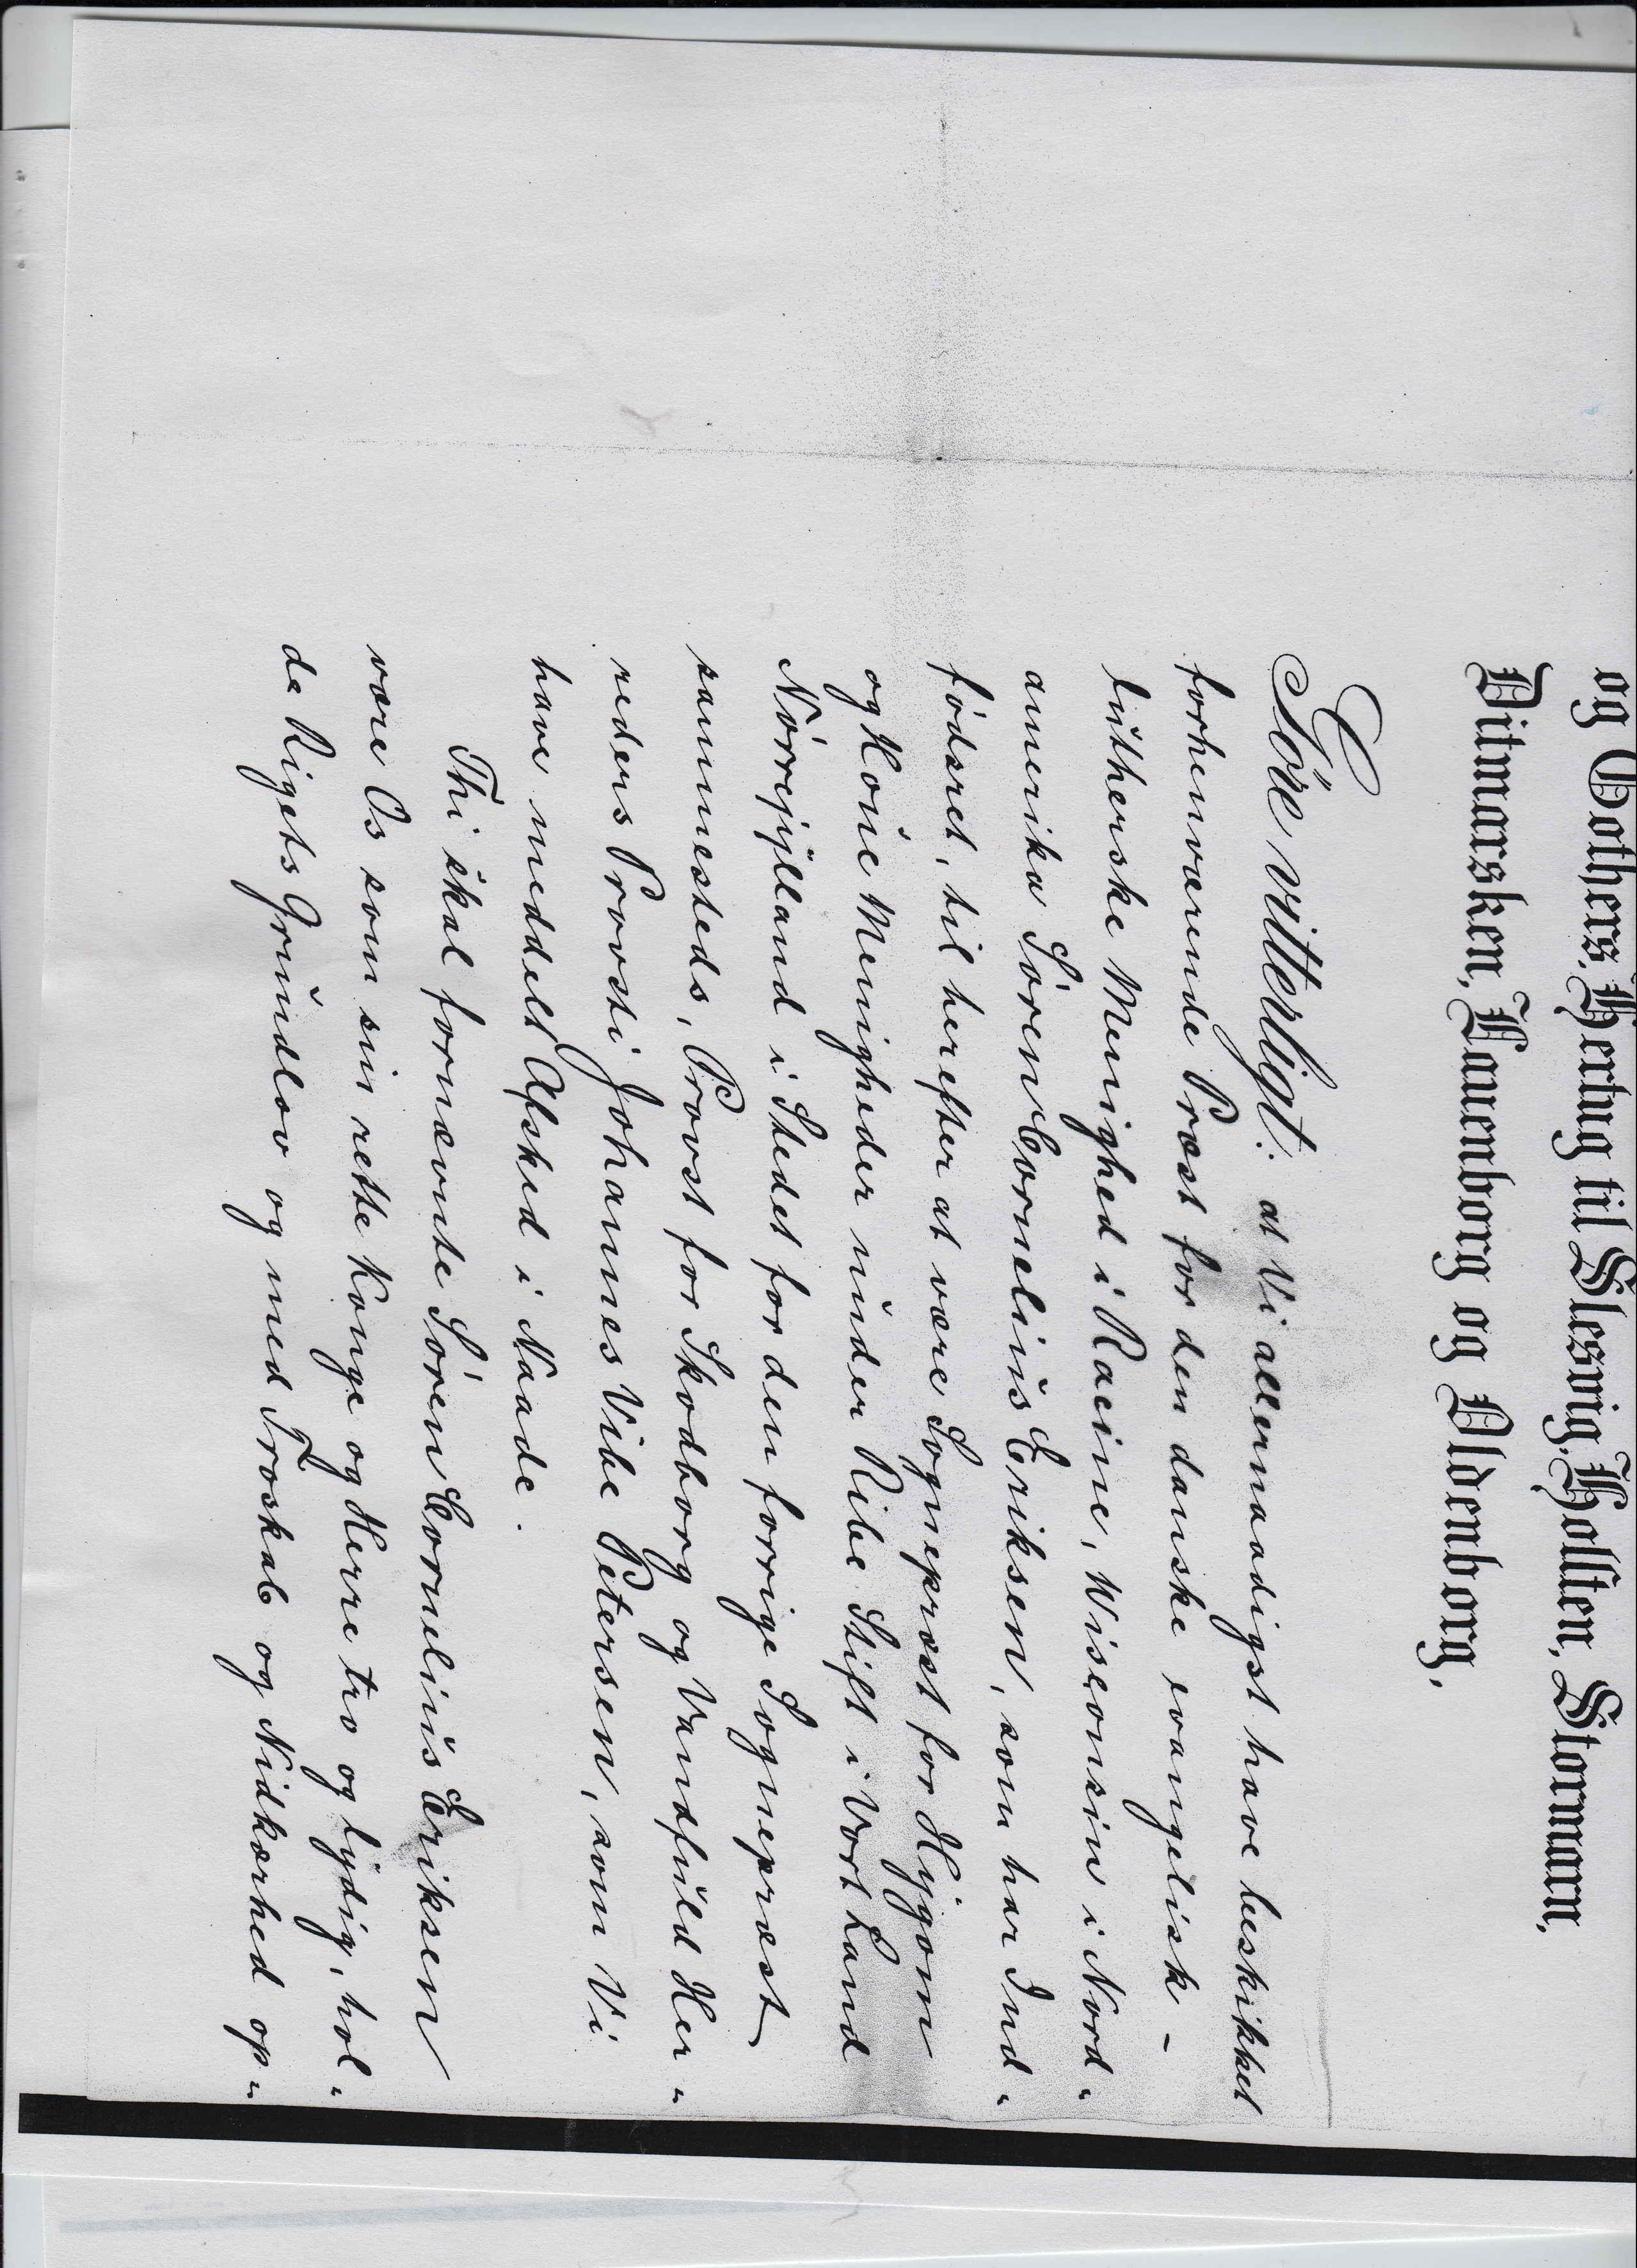 og Gothers, Hertug til Slesvig, Holsten, Stormarn,
Ditmarsken, Lauenborg og Oldenborg,
Göre vitterligt: at Vi allernaadigst have beskikket
forhenværende Præst for den danske evangelisk-
lutherske Menighed i Racine, Wisconsin i Nord-
amerika Sören Cornelius Eriksen, som har Ind-
födsret, til herefter at være Sognepræst for Hygom
og Köne Menigheder under Ribe Stift i Vort Land
Nörrejylland i Stedet for den forrige Sognepræst
sammesteds, Provst for Skodborg og Vandfuld Her-
reders Provsti Johannes Vibe Petersen, som Vi
have meddelt Afsked i Naade.
Thi skal fornævnte Sören Cornelius Eriksen
være Os som sin rette Konge og Herre tro og lydig, hol-
de Rigets Grundlov og med Troskab og Nidkærhed op-